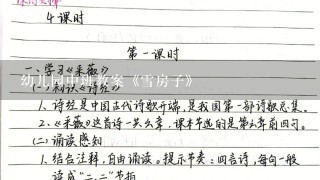 4课时
第一课时
一、学习《采薇》
幼儿园中班教案《雪房子》
(一)初识《诗经》
1、诗经是中国古代诗歌开端,是我国第一部诗歌总集。
2、《采薇》这首诗一共六章,课本节选的是第六章前四句。
(二)诵读感知
1、结合注释,自由诵读。提示节奏:四言诗,每句一般
读成"二、二"节拍